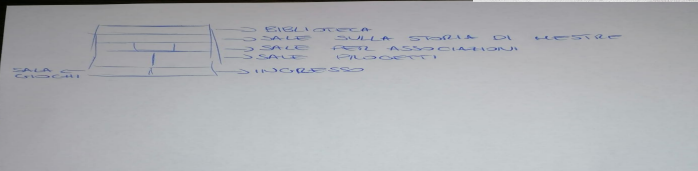 BIBLIOTECA
SALE SULLA STORIA DI MESTRE
SALE PER ASSOCIAZIONI
SALE PROGETTI
INGRESSO
SALA
GIOCHI